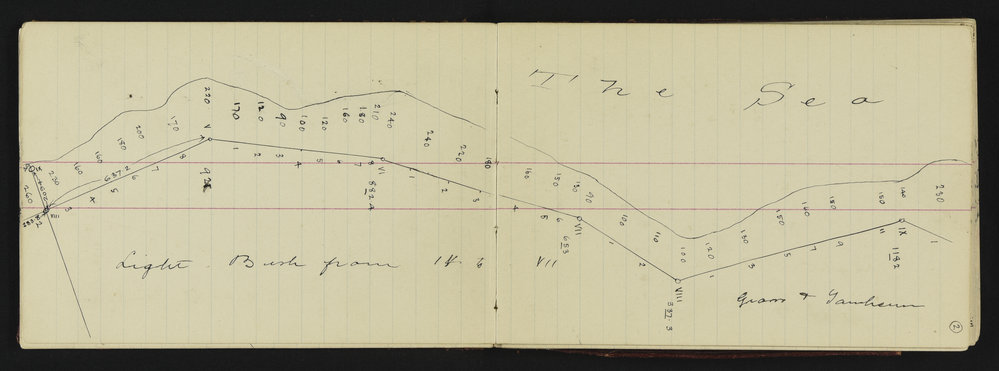 The Sea
220 170 120 90 100 120 160 180 210 240 240 220 180 160 150 130 90 100 110 100 120 130 150 160 150 150 160 230
170 200 180 160 160 230 260
V 1 2 3 4 5 6 7 8 VI 1 2 3 4 5 6 VII 1 2 VIII 1 3 5 7 9 11 IX 1
3 4 5 6 7 8
637.2
882.4
653
337.3
1182
Light Bush from IV to VII
Grass &
2